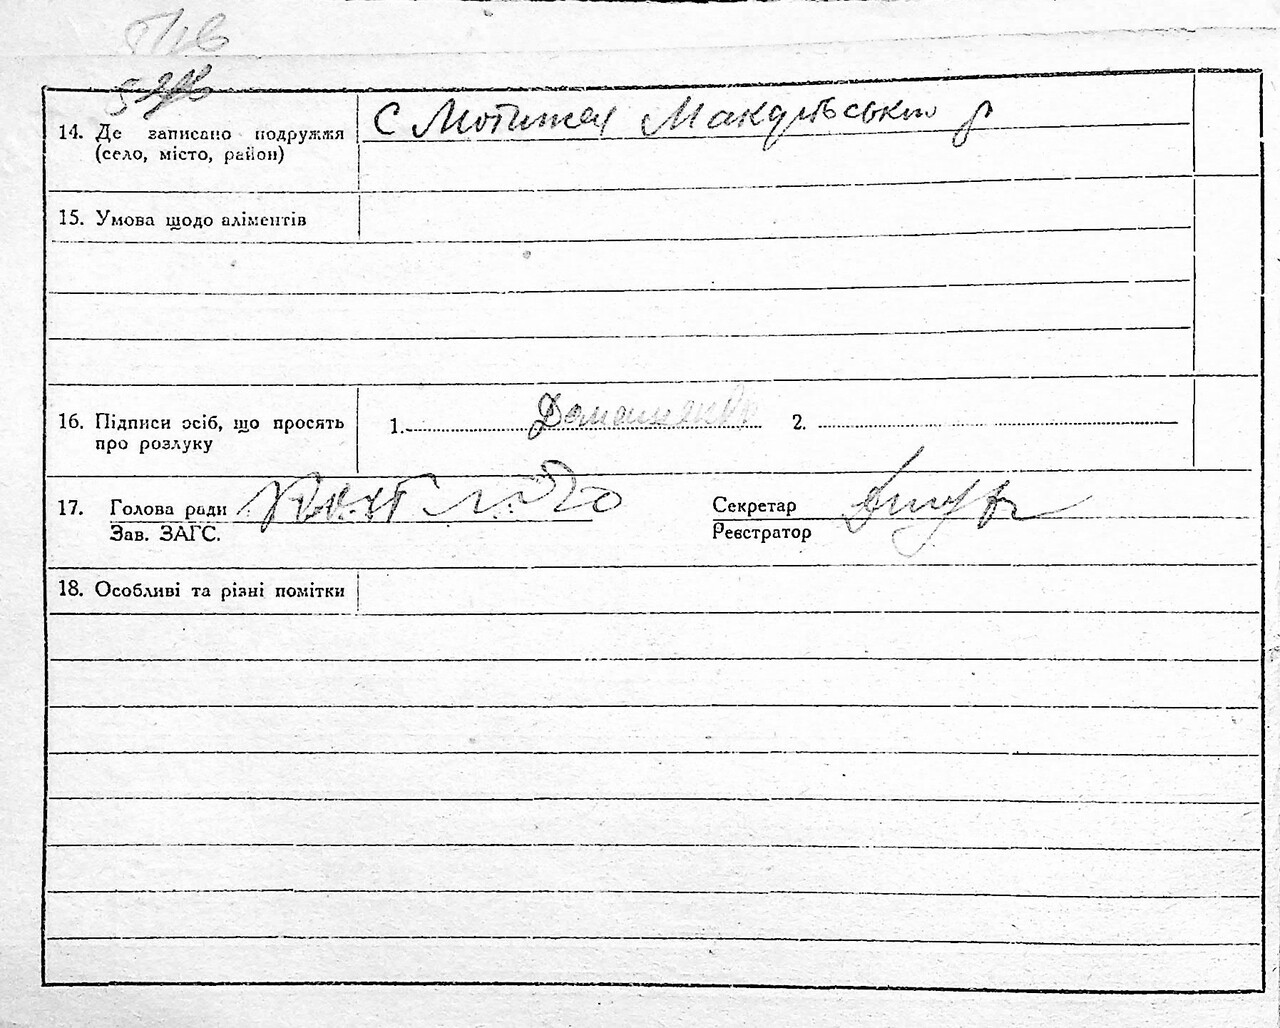 14. Де записано подружжя
(село, місто, район)
С Мотижея Макарівський р
15. Умова щодо аліментів
16. Підписи осіб, що просять
про розлуку
1. Домашенко 2.
17. Голова ради
Зав. ЗАГС.
Секретар
Реєстратор
18. Особливі та різні помітки